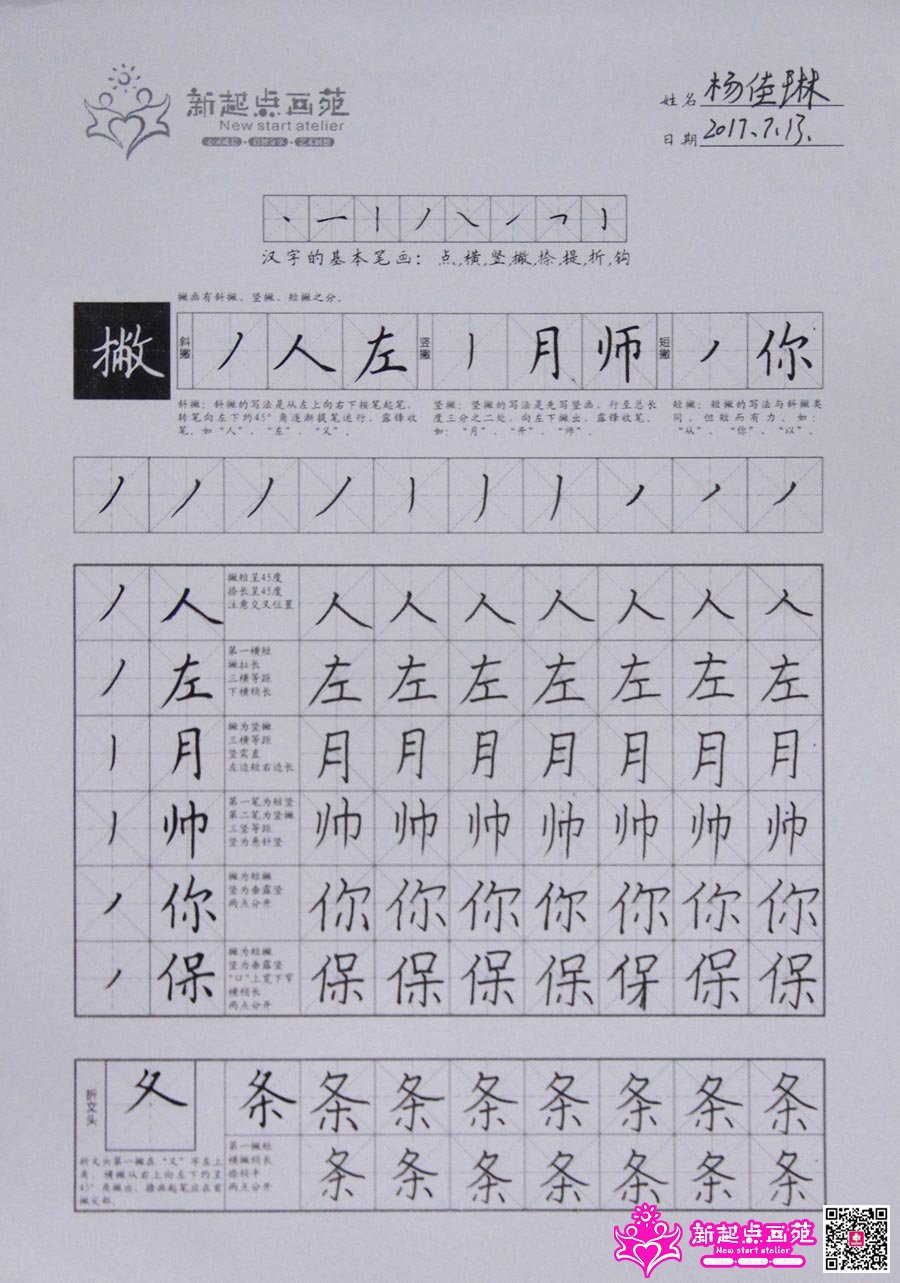 新起点画苑
New start atelier
姓名 杨佳琳
日期 2017.7.13.
汉字的基本笔画：点,横,竖,撇,捺,提,折,钩
撇画有斜撇、竖撇、短撇之分。
撇 斜撇 丿 人 左 竖撇 丿 月 师 短撇 丿 你
斜撇：斜撇的写法是从左上向右下按笔起笔，
转笔向左下约45°角逐渐提笔运行，露锋收
笔。如“人”、“左”、“义”。
竖撇：竖撇的写法是先写竖画，行至总长
度三分之二处，向左下撇出，露锋收笔。
如：“月”、“开”、“师”。
短撇：短撇的写法与斜撇类
同，但短而有力。如：
“从”、“你”、“以”。
丿 丿 丿 丿 丿 丿 丿 丿 丿 丿
丿 人 撇短呈45度 人 人 人 人 人 人 人
捺长呈45度
注意交叉位置
丿 左 第一横短 左 左 左 左 左 左 左
撇拉长
三横等距
下横稍长
丿 月 撇为竖撇 月 月 月 月 月 月 月
三横等距
竖需直
左边短右边长
丿 帅 第一笔为短竖 帅 帅 帅 帅 帅 帅 帅
第二笔为竖撇
三竖等距
竖为悬针竖
丿 你 撇为短撇 你 你 你 你 你 你 你
竖为垂露竖
两点分开
丿 保 撇为短撇 保 保 保 保 保 保 保
竖为垂露竖
“口”上宽下窄
横稍长
两点分开
折文头 夂 条 条 条 条 条 条 条 条
第一撇短 条 条 条 条 条 条 条
横撇稍长
捺稍平
两点分开
折文头第一撇在“又”字左上
角，横撇从右上向左下约呈
45°角撇出，捺画起笔应在首
撇尖部。
新起点画苑
New start atelier